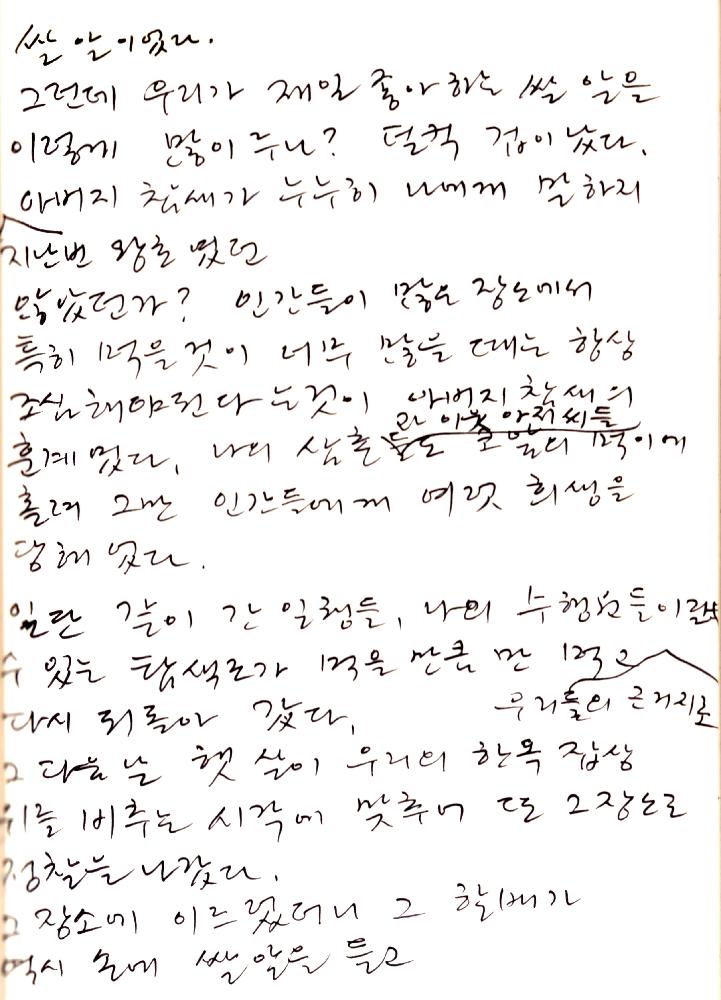 쌀 알이었다.
그런데 우리가 제일 좋아하는 쌀 알을
이렇게 많이 두나? 덜컥 겁이 났다.
아버지 참새가 누누히 나에게 말하지
지난번 왕초였던
않았던가? 인간들이 많은 장소에서
특히 먹을것이 너무 많을 때는 항상
조심해야된다는것이 아버지 참새의
과 이웃 아저씨들
훈계였다. 나의 삼촌들도 먹이에
홀려 그만 인간들에게 여럿 희생을
당해었다.
일단 같이 간 일행들, 나의 수행원들이랄
수 있는 탐색조가 먹을 만큼만 먹고
우리들의 근거지로
다시 되돌아 갔다.
그 다음날 햇살이 우리의 한옥 집상
위를 비추는 시각에 맞추어 또 그장소로
정찰을 나갔다.
그 장소에 이르렀더니 그 할배가
역시 손에 쌀알을 들고